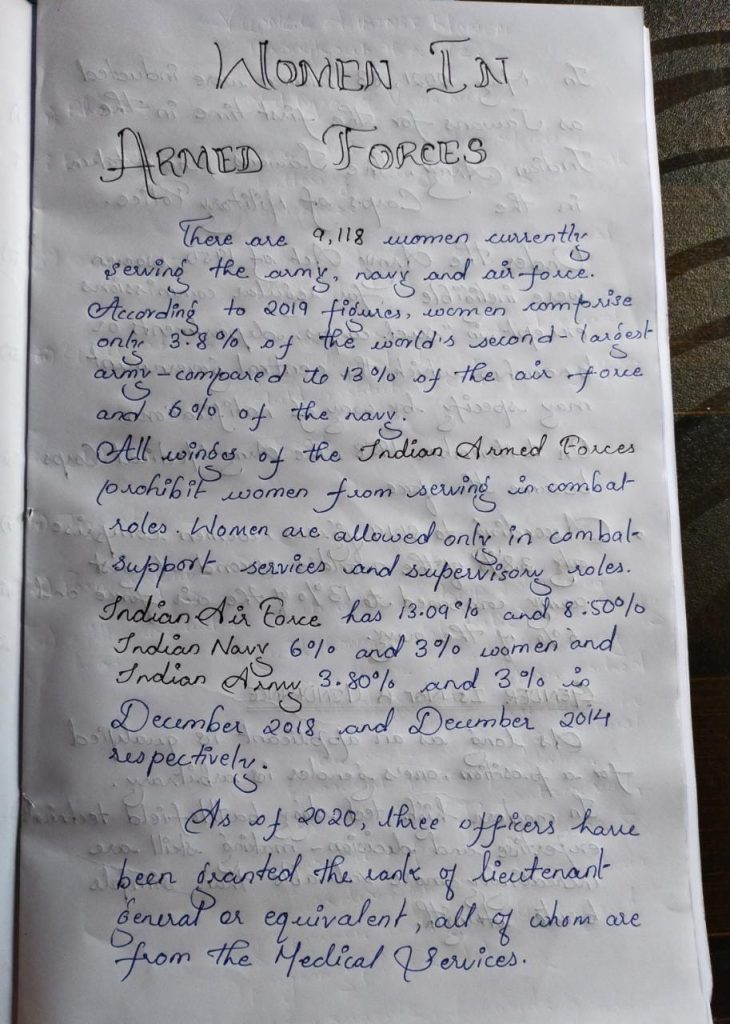 WOMEN IN
ARMED FORCES
There are 9,118 women currently
serving the army, navy and air-force.
According to 2019 figures, women comprise
only 3.8% of the world's second-largest
army-compared to 13% of the air force
and 6% of the navy.
All winges of the Indian Armed Forces
prohibit women from serving in combat
roles. Women are allowed only in combat-
support services and supervisory roles.
Indian Air Force has 13.09% and 8.50%
Indian Navy 6% and 3% women and
Indian Army 3.80% and 3% in
December 2018 and December 2014
respectively.
As of 2020, three officers have
been granted the rank of lieutenant
general or equivalent, all of whom are
from the Medical Services.